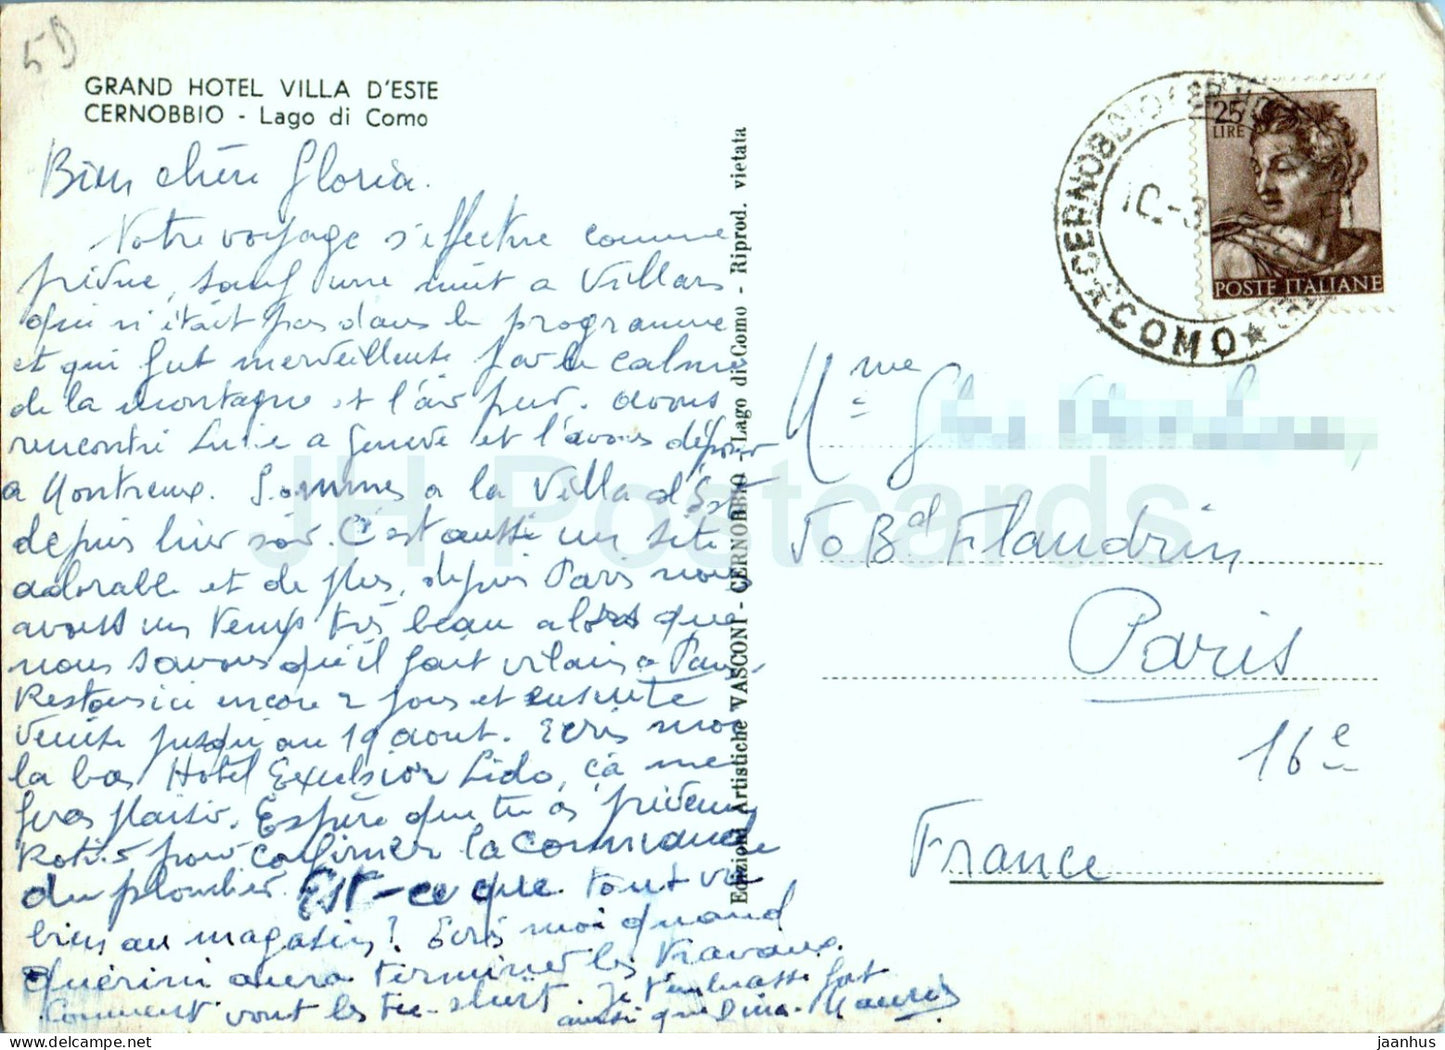 5D
GRAND HOTEL VILLA D'ESTE
CERNOBBIO - Lago di Como
Bien chère Gloria.
Notre voyage s'effectue comme
prévue, sauf une nuit a Villars
qui n'était pas dans le programme
et qui fut merveilleuse par le calme
de la montagne et l'air pur. avons
rencontré Lucie a Genève et l'avons déposer
a Montreux. Sommes a la Villa d'Est
depuis hier soir. C'est aussi un site
adorable et de plus, depuis Paris nous
avons un temps très beau alors que
nous savons qu'il fait vilain a Paris.
Restons ici encore 2 jours et ensuite
Venise jusqu'au 19 aout. Ecris moi
la bas Hotel Excelsior Lido, ça me
feras plaisir. Espère que tu as prévenu
pour confirmer la commande
du plombier. Est-ce que tout va
bien au magasin? Ecris moi quand
Guérini aura terminer les travaux.
Comment vont les tee-shirt. Je t'embrasse fort
aussi que Maurice
Edizioni Artistiche VASCONI - CERNOBBIO - Lago di Como - Riprod. vietata
CERNOBBIO
COMO
10-8
25
LIRE
POSTE ITALIANE
Mme
70 Bd Flandrin
Paris
16e
France
JH Postcards
jaanhus